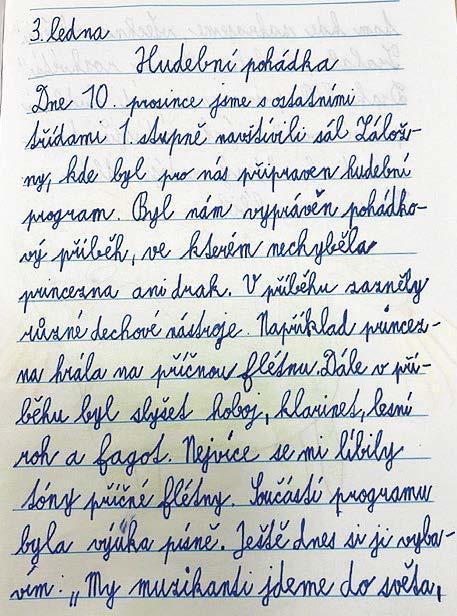 3. ledna
Hudební pohádka
Dne 10. prosince jsme s ostatními
třídami 1. stupně navštívili sál Zálož-
ny, kde byl pro nás připraven hudební
program. Byl nám vyprávěn pohádko-
vý příběh, ve kterém nechyběla
princezna ani drak. V příběhu zazněly
různé dechové nástroje. Například princez-
na hrála na příčnou flétnu. Dále v pří-
běhu byl slyšet hoboj, klarinet, lesní
roh a fagot. Nejvíce se mi líbily
tóny příčné flétny. Součástí programu
byla výuka písně. Ještě dnes si ji vyba-
vím: „My muzikanti jdeme do světa,